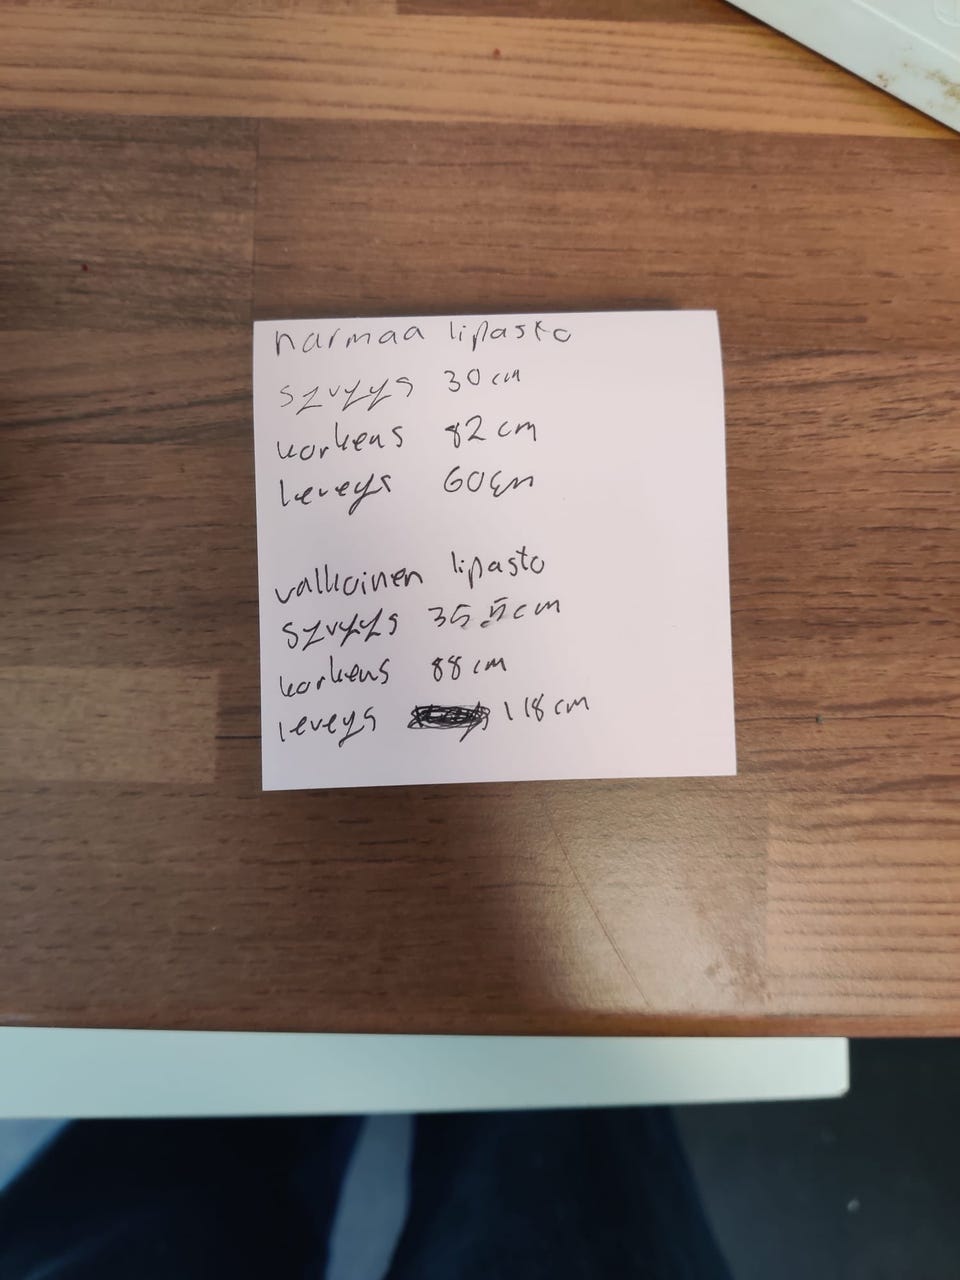 harmaa lipasto
syvyys 30 cm
korkeus 82 cm
leveys 60cm
valkoinen lipasto
syvyys 35,5cm
korkeus 88 cm
leveys 118 cm